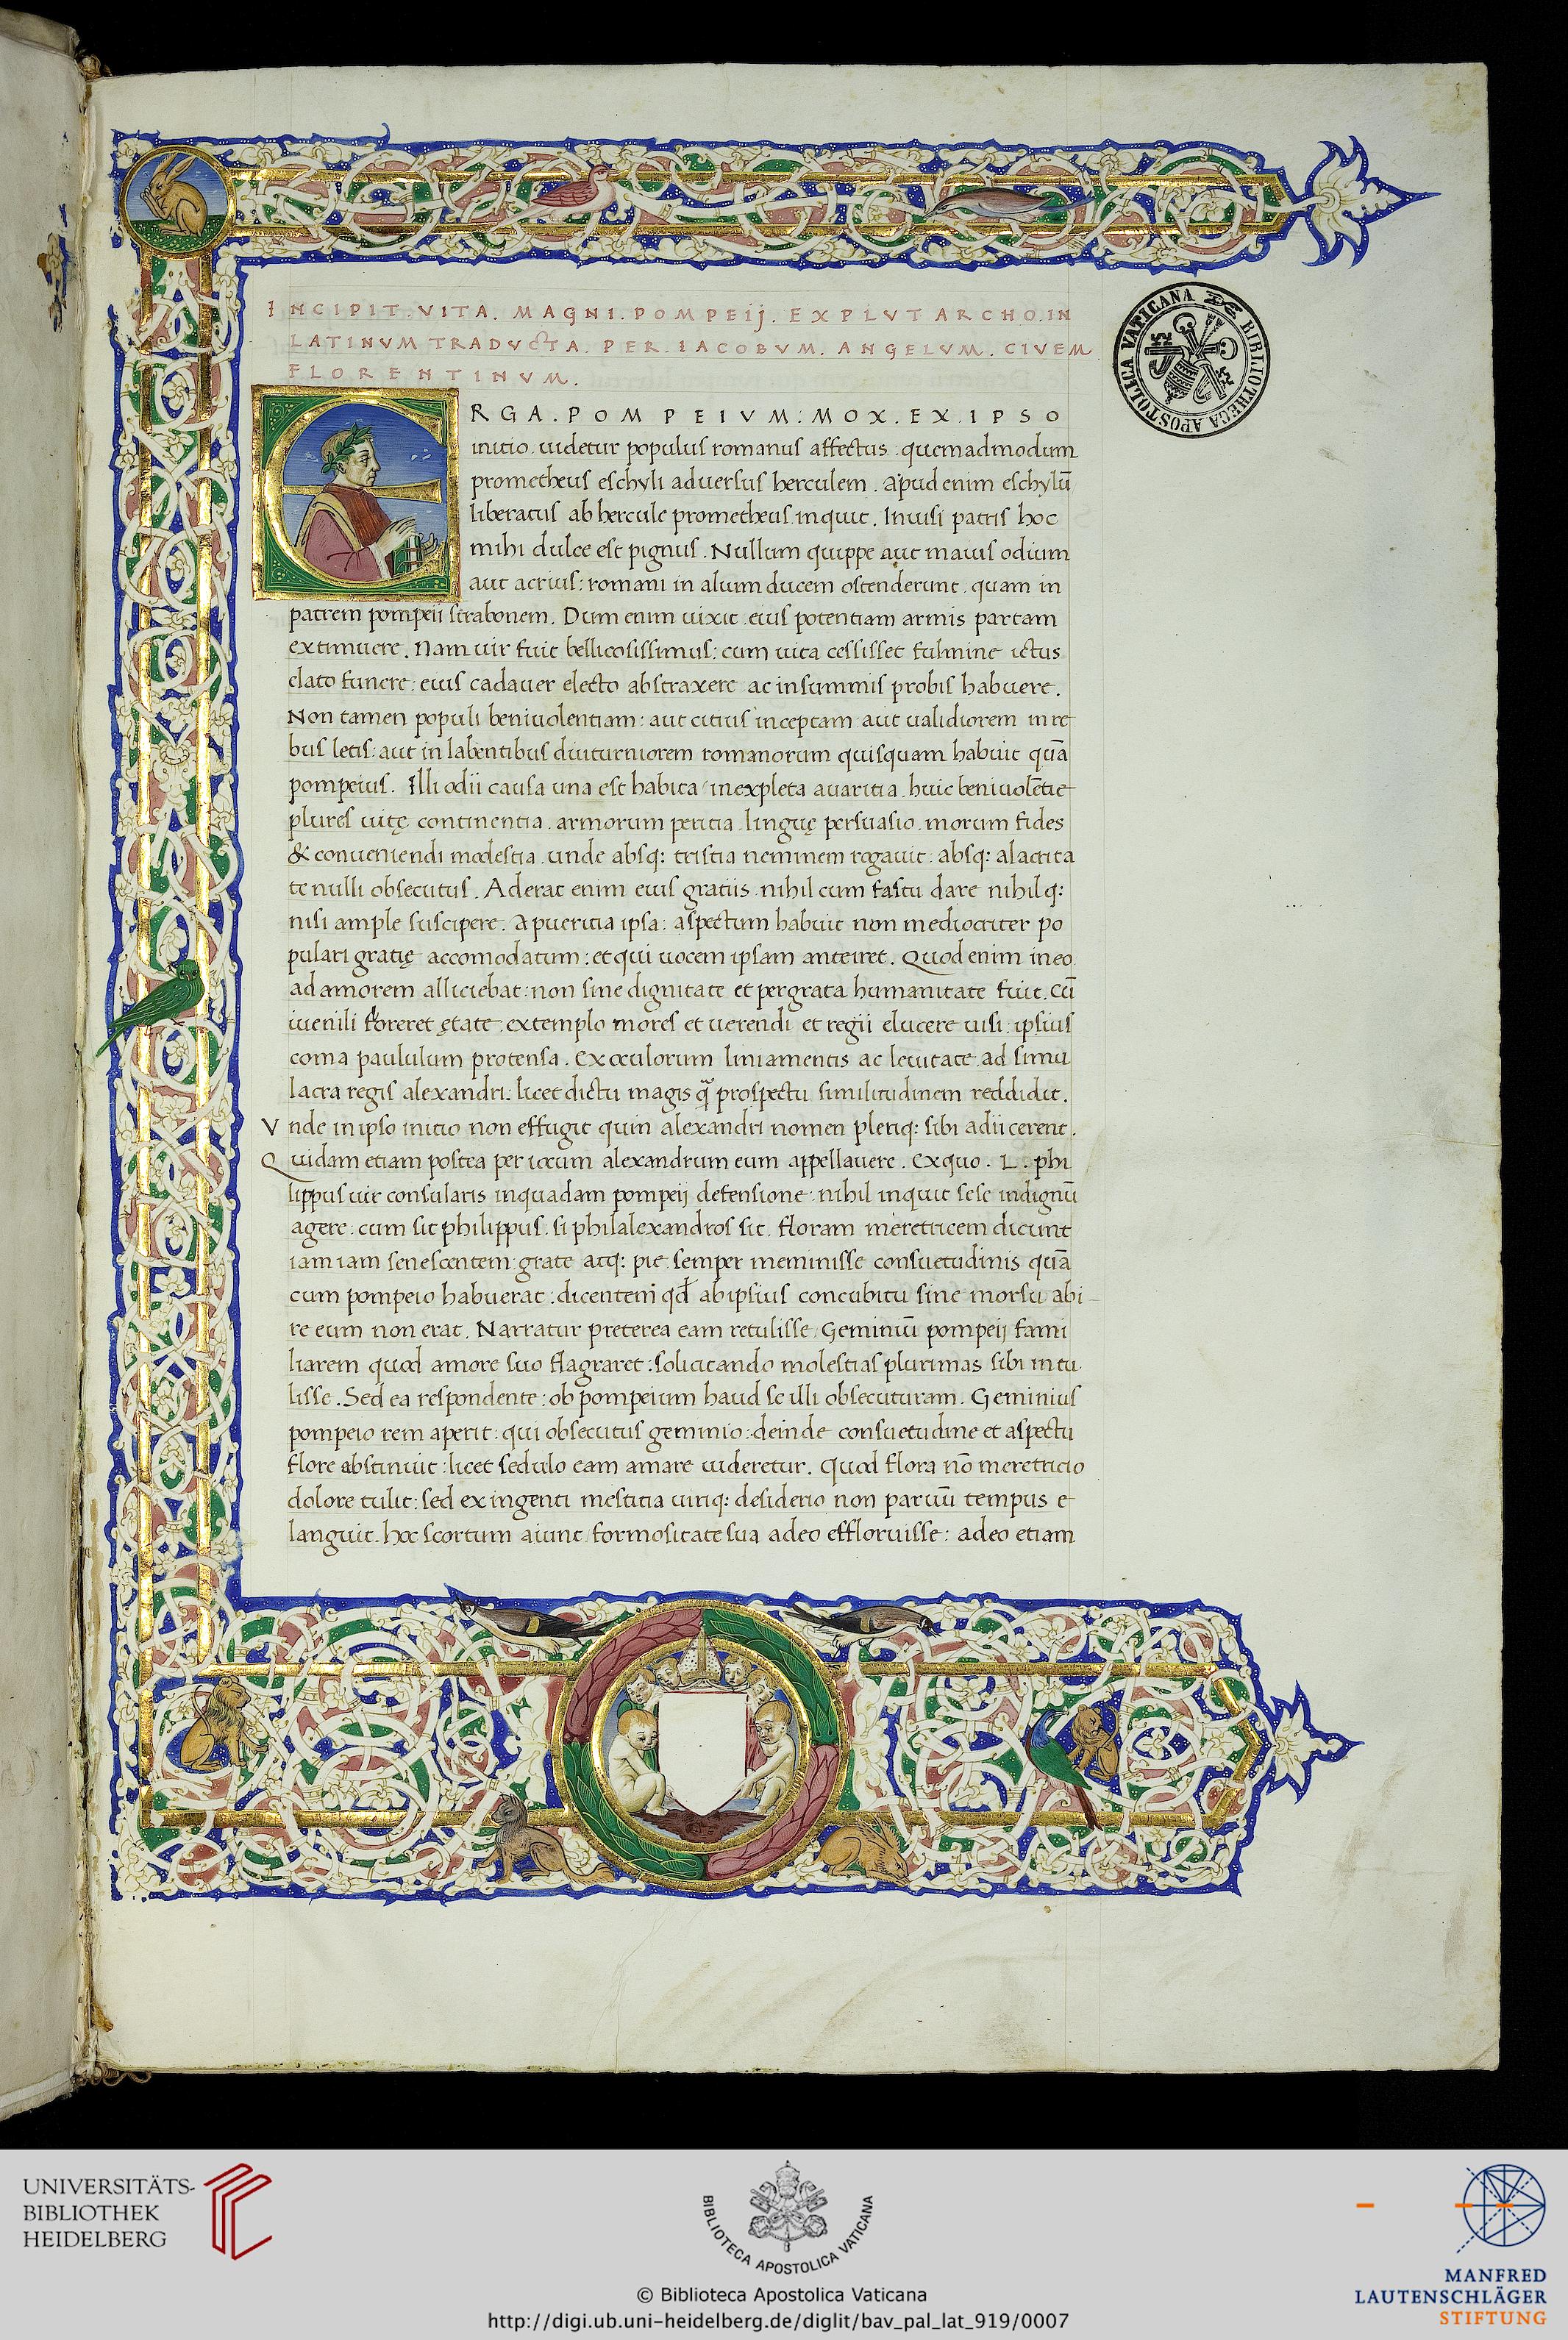 INCIPIT. VITA. MAGNI. POMPEIj. EX PLVTARCHO. IN
LATINVM TRADVCTA. PER. IACOBVM. ANGELVM. CIVEM
FLORENTINVM.
ERGA. POMPEIVM: MOX. EX. IPSO
initio uidetur populus romanus affectus quemadmodum
prometheus eschyli aduersus herculem. apud enim eschylū
liberatus ab hercule prometheus inquit. Inuisi patris hoc
mihi dulce est pignus. Nullum quippe aut maius odium
aut acrius: romani in alium ducem ostenderunt. quam in
patrem pompeii strabonem. Dum enim uixit eius potentiam armis partam
extimuere. Nam uir fuit bellicosissimus: cum uita cessisset fulmine ictus
elato funere: eius cadauer electo abstraxere ac in summis probis habuere.
Non tamen populi beniuolentiam: aut citius inceptam aut ualidiorem in re
bus letis: aut in labentibus diuturniorem romanorum quisquam habuit quā
pompeius. Illi odii causa una est habita inexpleta auaritia. huic beniuolētie
plures uitę continentia. armorum peritia linguę persuasio. morum fides
& conueniendi modestia. unde absq: tristia neminem rogauit: absq: alacrita
te nulli obsecutus. Aderat enim eius gratiis nihil cum fastu dare nihil q:
nisi ample suscipere. A pueritia ipsa: aspectum habuit non mediocriter po
pulari gratię accomodatum: et qui uocem ipsam anteiret. Quod enim in eo
ad amorem alliciebat: non sine dignitate et pergrata humanitate fuit. Cū
iuenili floreret ętate: extemplo mores et uerendi et regii elucere uisi: ipsius
coma paululum protensa. Ex oculorum liniamentis ac leuitate ad simu
lacra regis alexandri: licet dictu magis q̄ prospectu similitudinem reddidit.
Vnde in ipso initio non effugit quin alexandri nomen pleriq: sibi adiicerent.
Quidam etiam postea per iocum alexandrum eum appellauere. Ex quo. L. phi
lippus uir consularis in quadam pompeij defensione nihil inquit sese indignū
agere: cum sit philippus. si philalexandros sit. floram meretricem dicunt
iam iam senescentem: grate atq: pie semper meminisse consuetudinis quā
cum pompeio habuerat: dicentem qđ ab ipsius concubitu sine morsu abi
re eum non erat. Narratur preterea eam retulisse Geminiū pompeij fami
liarem quod amore suo flagraret: solicitando molestias plurimas sibi intu
lisse. Sed ea respondente: ob pompeium haud se illi obsecuturam. Geminius
pompeio rem aperit: qui obsecutus geminio: deinde consuetudine et aspectu
flore abstinuit: licet sedulo eam amare uideretur. Quod flora nō meretricio
dolore tulit: sed ex ingenti mestitia uiriq: desiderio non paruū tempus e
languit. hoc scortum aiunt formositate sua adeo effloruisse: adeo etiam
BIBLIOTHECA APOSTOLICA VATICANA
UNIVERSITÄTS-
BIBLIOTHEK
HEIDELBERG
BIBLIOTECA APOSTOLICA VATICANA
© Biblioteca Apostolica Vaticana
http://digi.ub.uni-heidelberg.de/diglit/bav_pal_lat_919/0007
MANFRED
LAUTENSCHLÄGER
STIFTUNG